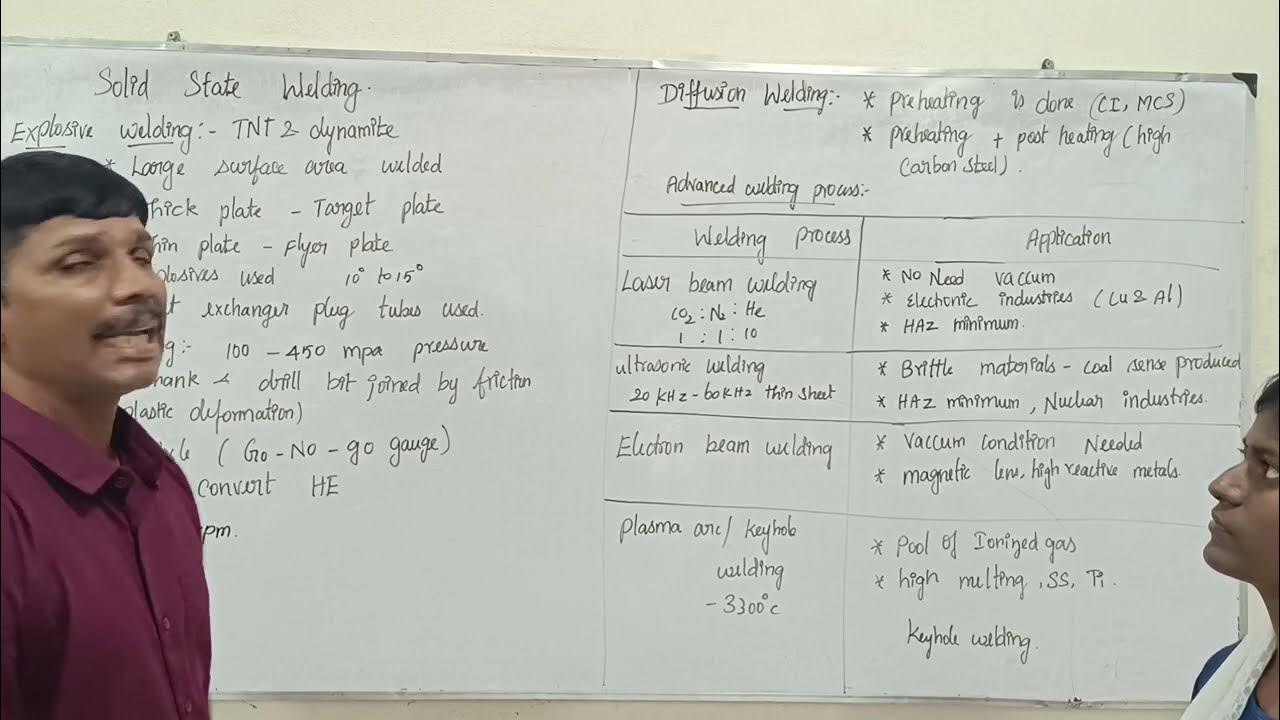 Solid State Welding.
Explosive welding:- TNT & dynamite
* Large surface area welded
hick plate - Target plate
hin plate - Flyer plate
plosives used 10° to 15°
t exchanger plug tubes used.
g:- 100 - 450 mpa pressure
hank & drill bit joined by friction
plastic deformation)
le ( Go - No - go gauge)
convert HE
rpm.
Diffusion Welding:- * Preheating is done (CI, MCS)
* preheating + post heating (high
Carbon Steel).
Advanced welding process:-
Welding Process
Application
Laser beam welding
CO2 : N2 : He
1 : 1 : 10
* NO Need vaccum
* Electronic industries (Cu & Al)
* HAZ minimum.
ultrasonic welding
20 KHz - 60 KHz thin sheet
* Brittle materials - coal sense produced
* HAZ minimum, Nuclar industries.
Electron beam welding
* Vaccum Condition Needed
* magnetic lens, high reactive metals.
Plasma arc/ keyhole
welding
- 3300°c
* Pool of Ionized gas
* high melting, SS, Ti.
Keyhole welding.